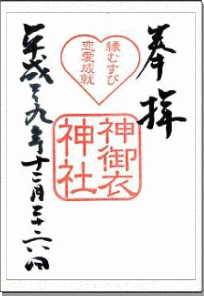 奉拝
縁むすび
恋愛成就
神御衣
神社
平成二九年十二月二十六日